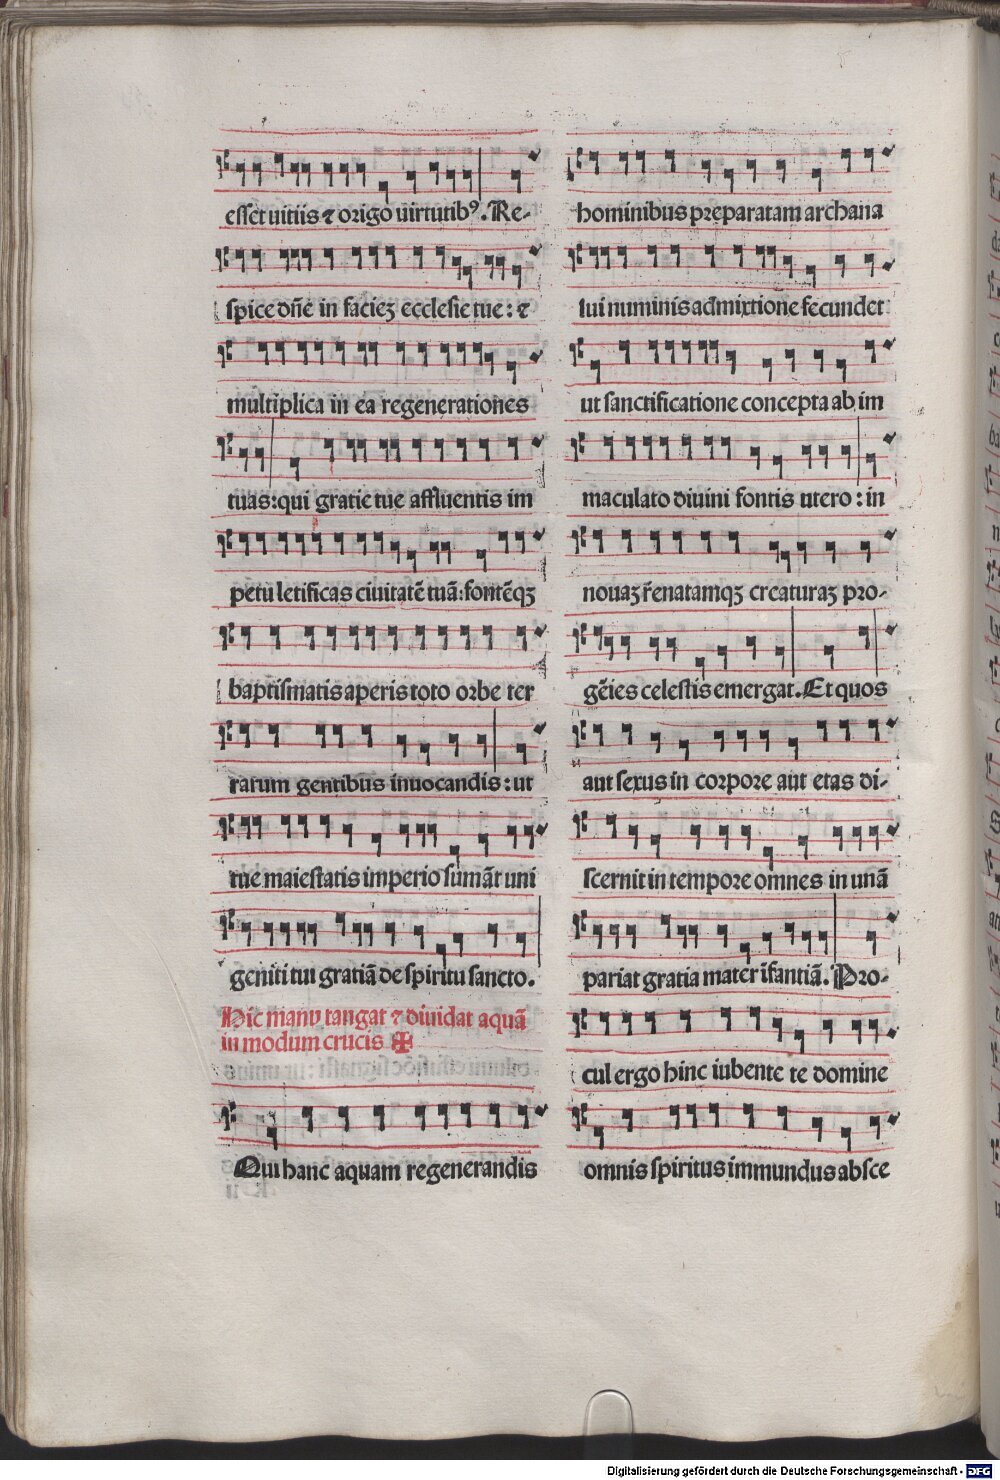 esset uitiis ⁊ origo uirtutibꝰ. Re-
spice dn̄e in facieꝫ ecclesie tue: ⁊
multiplica in ea regenerationes
tuas: qui gratie tue affluentis im
petu letificas ciuitatē tuā: fontēqꝫ
baptismatis aperis toto orbe ter
rarum gentibus inuocandis: ut
tue maiestatis imperio sumāt uni
geniti tui gratiā de spiritu sancto.
Hic manu tangat ⁊ diuidat aquā
in modum crucis ✠
Qui hanc aquam regenerandis
hominibus preparatam archana
sui numinis admixtione fecundet
ut sanctificatione concepta ab im
maculato diuini fontis utero: in
nouaꝫ r̄enatamqꝫ creaturaꝫ pro-
gēies celestis emergat. Et quos
aut sexus in corpore aut etas di-
scernit in tempore omnes in unā
pariat gratia mater īfantiā. Pro-
cul ergo hinc iubente te domine
omnis spiritus immundus absce
Digitalisierung gefördert durch die Deutsche Forschungsgemeinschaft - DFG